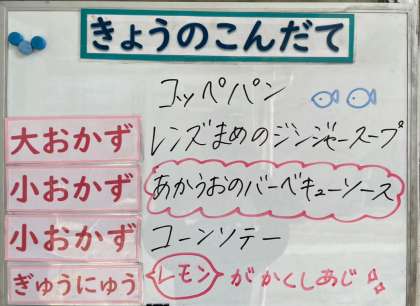 きょうのこんだて
コッペパン
大おかず レンズまめのジンジャースープ
小おかず あかうおのバーベキューソース
小おかず コーンソテー
ぎゅうにゅう レモンがかくしあじ